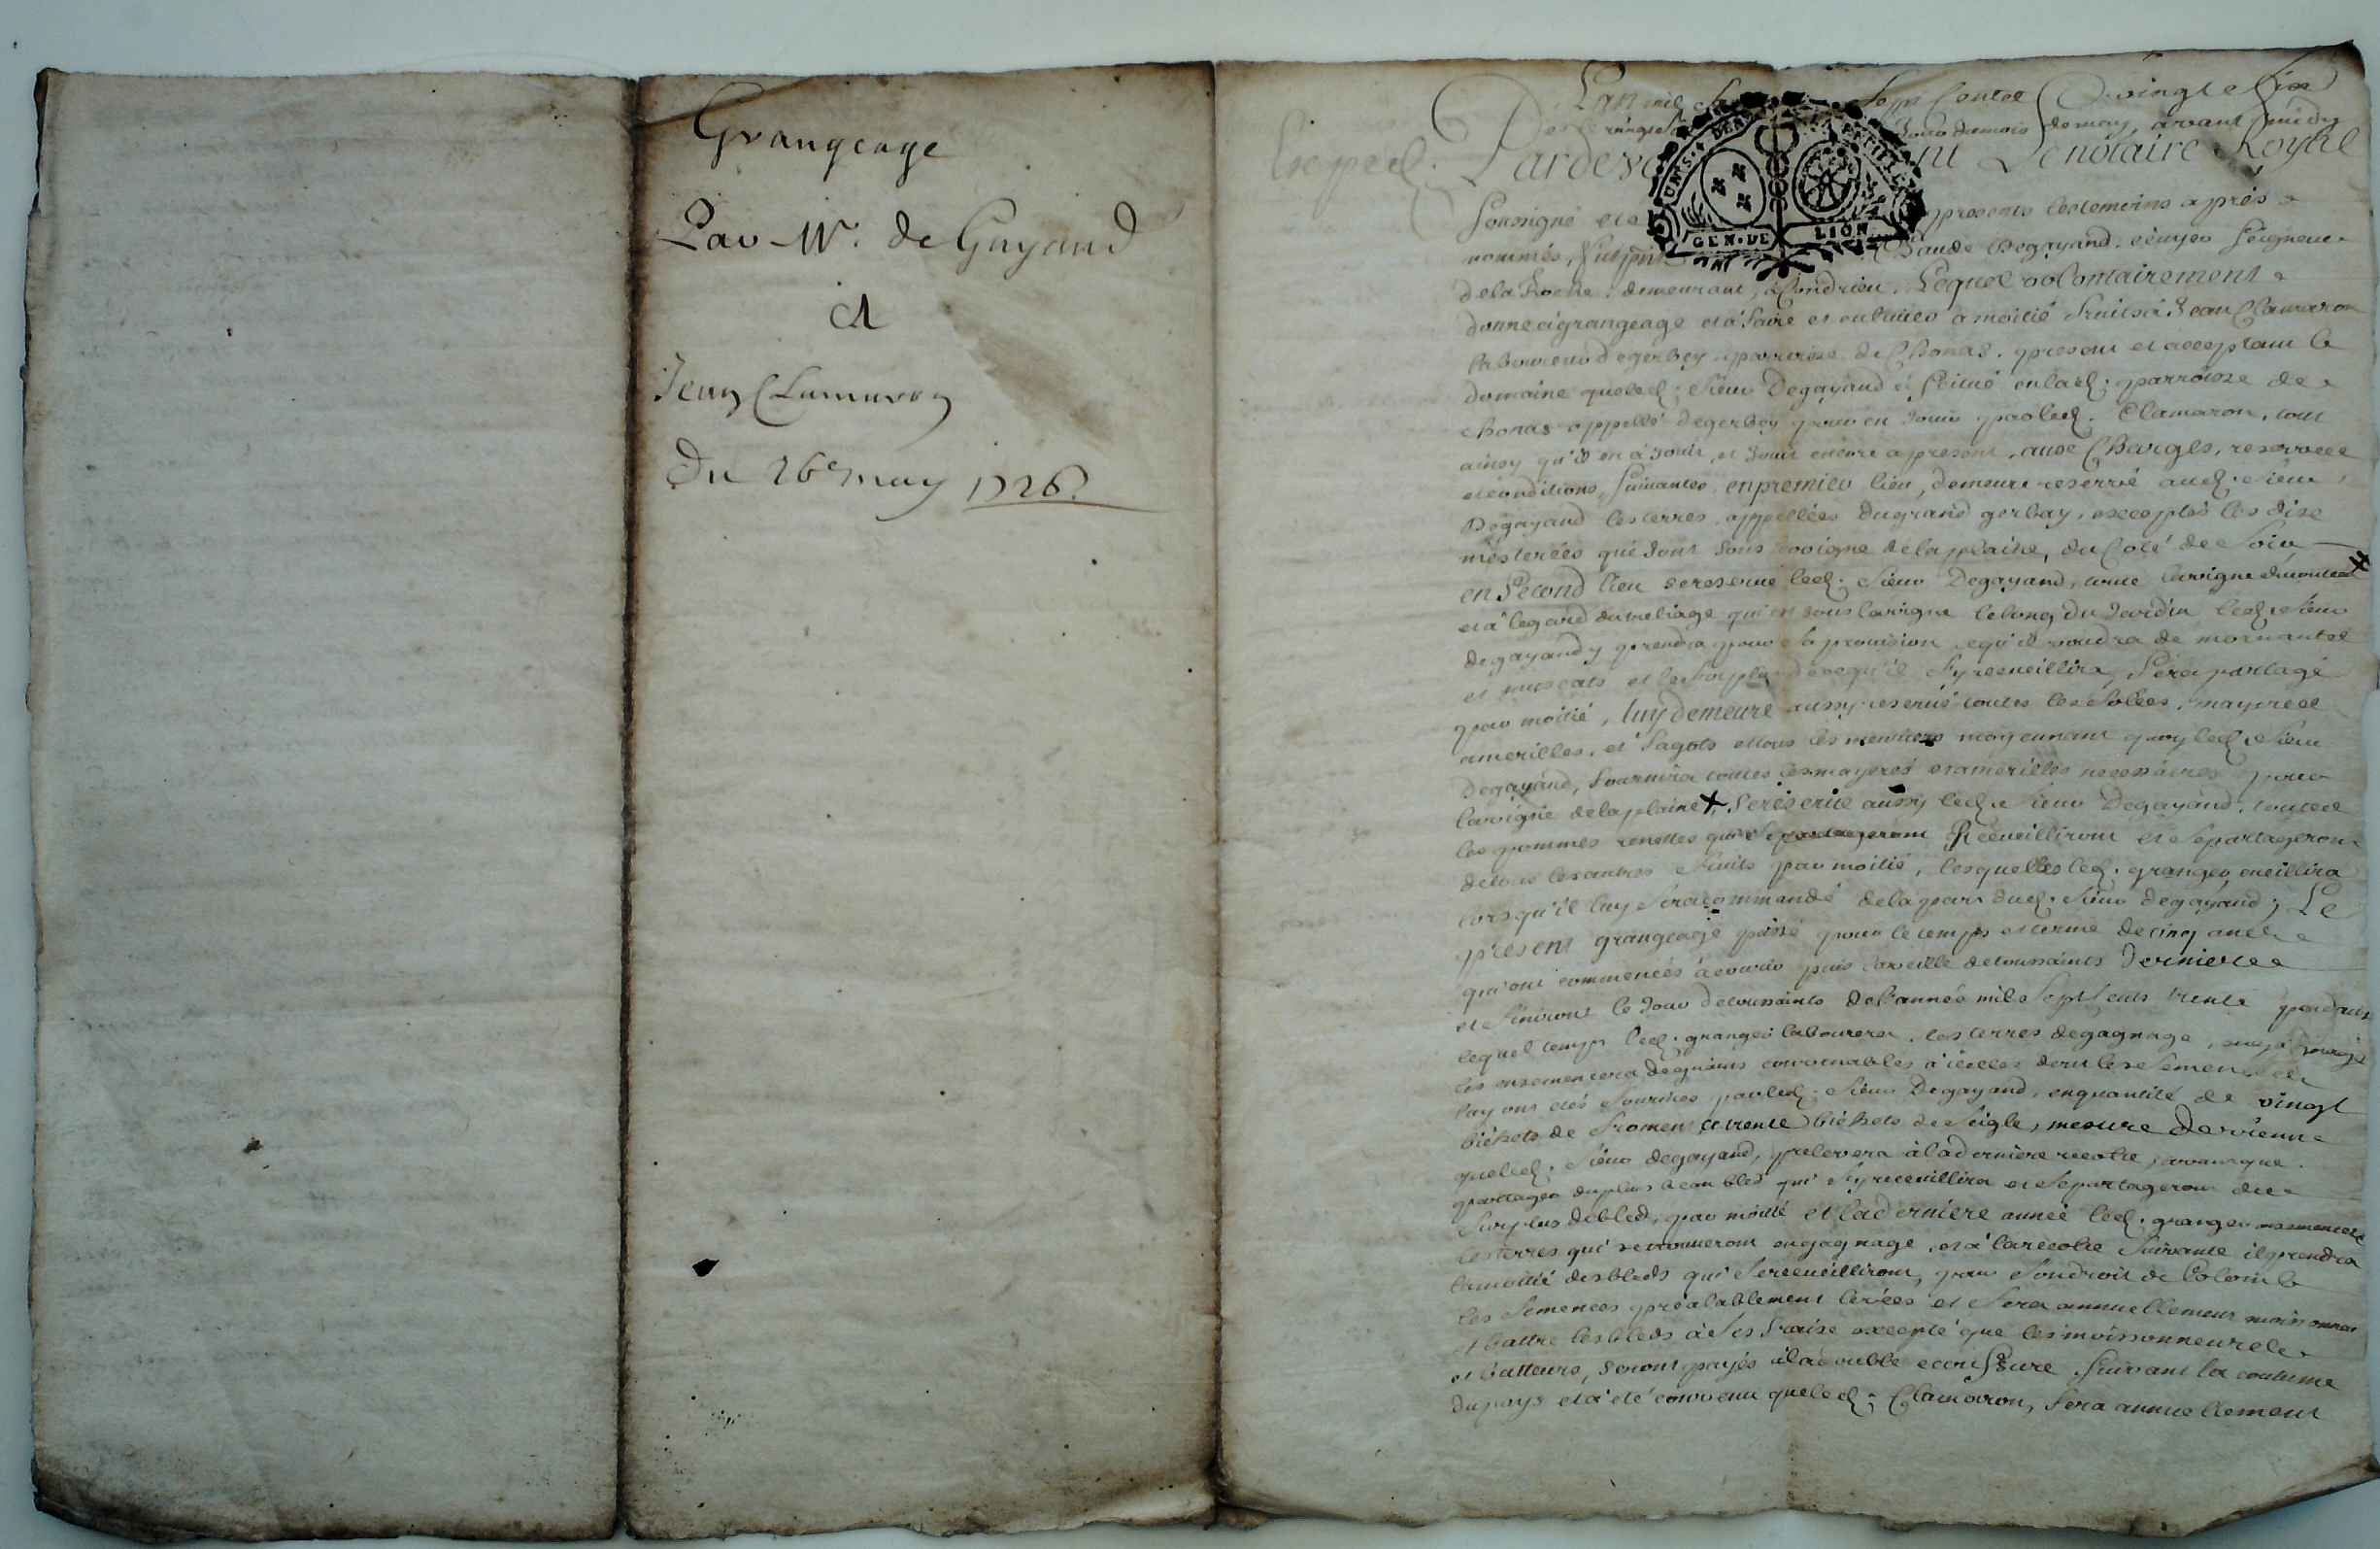 Grangeage
Par Mr. de Gayand
A
Jean Clamaron
Du 26e may 1726.
Exped.
L'an mil Sept Centz vingt e Six
Jour du mois de may, avant midy
Pardevant Le notaire Royal
Soussigné et presents les temoins aprés
nommés, fut Claude Degayand. ecuyer Seigneur
dela Roche. demeurant, a Condrieu. Lequel volontairement
donne a grangeage et à faire et cultiver a moitié fruits à Jean Clamaron
laboureur degerbey parroisse de Chonas. present et acceptant le
domaine queled. Sieur Degayand a Scitué enlad. parroisse de
chonas appellé degerbey pour en Jouir parled. Clamaron, tout
ainsy qu'il en à Jouit, et Jouit encore apresent, aux Charges, reserves
et conditions, Suivantes. en premier lieu, demeure reservé aud. sieur
Degayand les terres appellées du grand gerbay, exceptés les dix
mesterées qui Sont Sous la vigne de la plaine, du Coté de Soir
en Second lieu se reserve led. Sieur Degayand, toute la vigne X
et à legard du treliage qui est sous la vigne le long du Jardin led. Sieur
degayand y prendra pour Sa provision cequ'il voudra de mornantes
et muscats et le Surplus decequ'il Sy recueillira, Sera partagé
par moitié, luy demeure aussy reservé toutes les folées, mayeres
amerilles, et fagots et tous les meuriers moyennant quoy led. Sieur
Degayand, fournira toutes les mayeres et amerilles necessaires pour
la vigne de la plaine X Se reserve aussy led. Sieur Degayand, toutes
les pommes renettes qui Se recueilliront et Se partageront
de tous les autres fruits par moitié, lesquelles led. granger cueillira
lorsqu'il luy Sera commandé de la part dud. Sieur degayand; Le
present grangeage passé pour le temps et terme de cinq années
qui ont commencés à courir puis la veille de toussaints derniere
et finiront le Jour de toussaints de l'année mil Sept Cents trente pendant
lequel temps led. granger labourera, les terres degagnage,
les ensemencera degrains convenables à icelles dont les Semences
luy ont étés fournies parled. Sieur Degayand, en quantité de vingt
bichets de froment et trente bichets de Seigle, mesure de vienne
queled. Sieur degayand, prelevera à la derniere recolte, avant que
partager du plus beau bled qui Sy recueillira et Se partageront le
Surplus de bled, par moitié et la derniere année led. granger ensemencera
les terres qui se trouveront engagnage, et à la recolte Suivante il prendra
la moitié des bleds qui Se recueilliront, pour Son droit de Colon
les Semences prealablement levées et Sera annuellement moissonner
et battre les bleds à Ses fraix excepté que les moissonneurs
et batteurs, seront payés à la double Suivant la coutume
du pays et à été convenu queled. Clamaron, Sera annuellement
GEN. DE LION